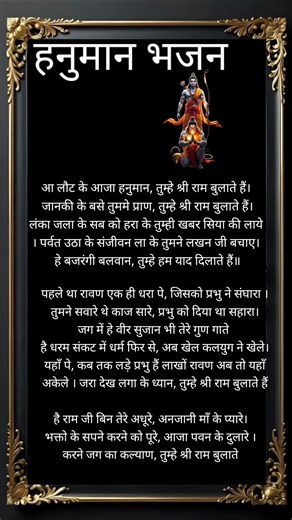 हनुमान भजन
आ लौट के आजा हनुमान, तुम्हे श्री राम बुलाते हैं।
जानकी के बसे तुममे प्राण, तुम्हे श्री राम बुलाते हैं।
लंका जला के सब को हरा के तुम्ही खबर सिया की लाये
। पर्वत उठा के संजीवन ला के तुमने लखन जी बचाए।
हे बजरंगी बलवान, तुम्हे हम याद दिलाते हैं॥
पहले था रावण एक ही धरा पे, जिसको प्रभु ने संघारा ।
तुमने सवारे थे काज सारे, प्रभु को दिया था सहारा।
जग में हे वीर सुजान भी तेरे गुण गाते
है धरम संकट में धर्म फिर से, अब खेल कलयुग ने खेले।
यहाँ पे, कब तक लड़े प्रभु हैं लाखों रावण अब तो यहाँ
अकेले । जरा देख लगा के ध्यान, तुम्हे श्री राम बुलाते हैं
है राम जी बिन तेरे अधूरे, अनजानी माँ के प्यारे।
भक्तो के सपने करने को पूरे, आजा पवन के दुलारे ।
करने जग का कल्याण, तुम्हे श्री राम बुलाते